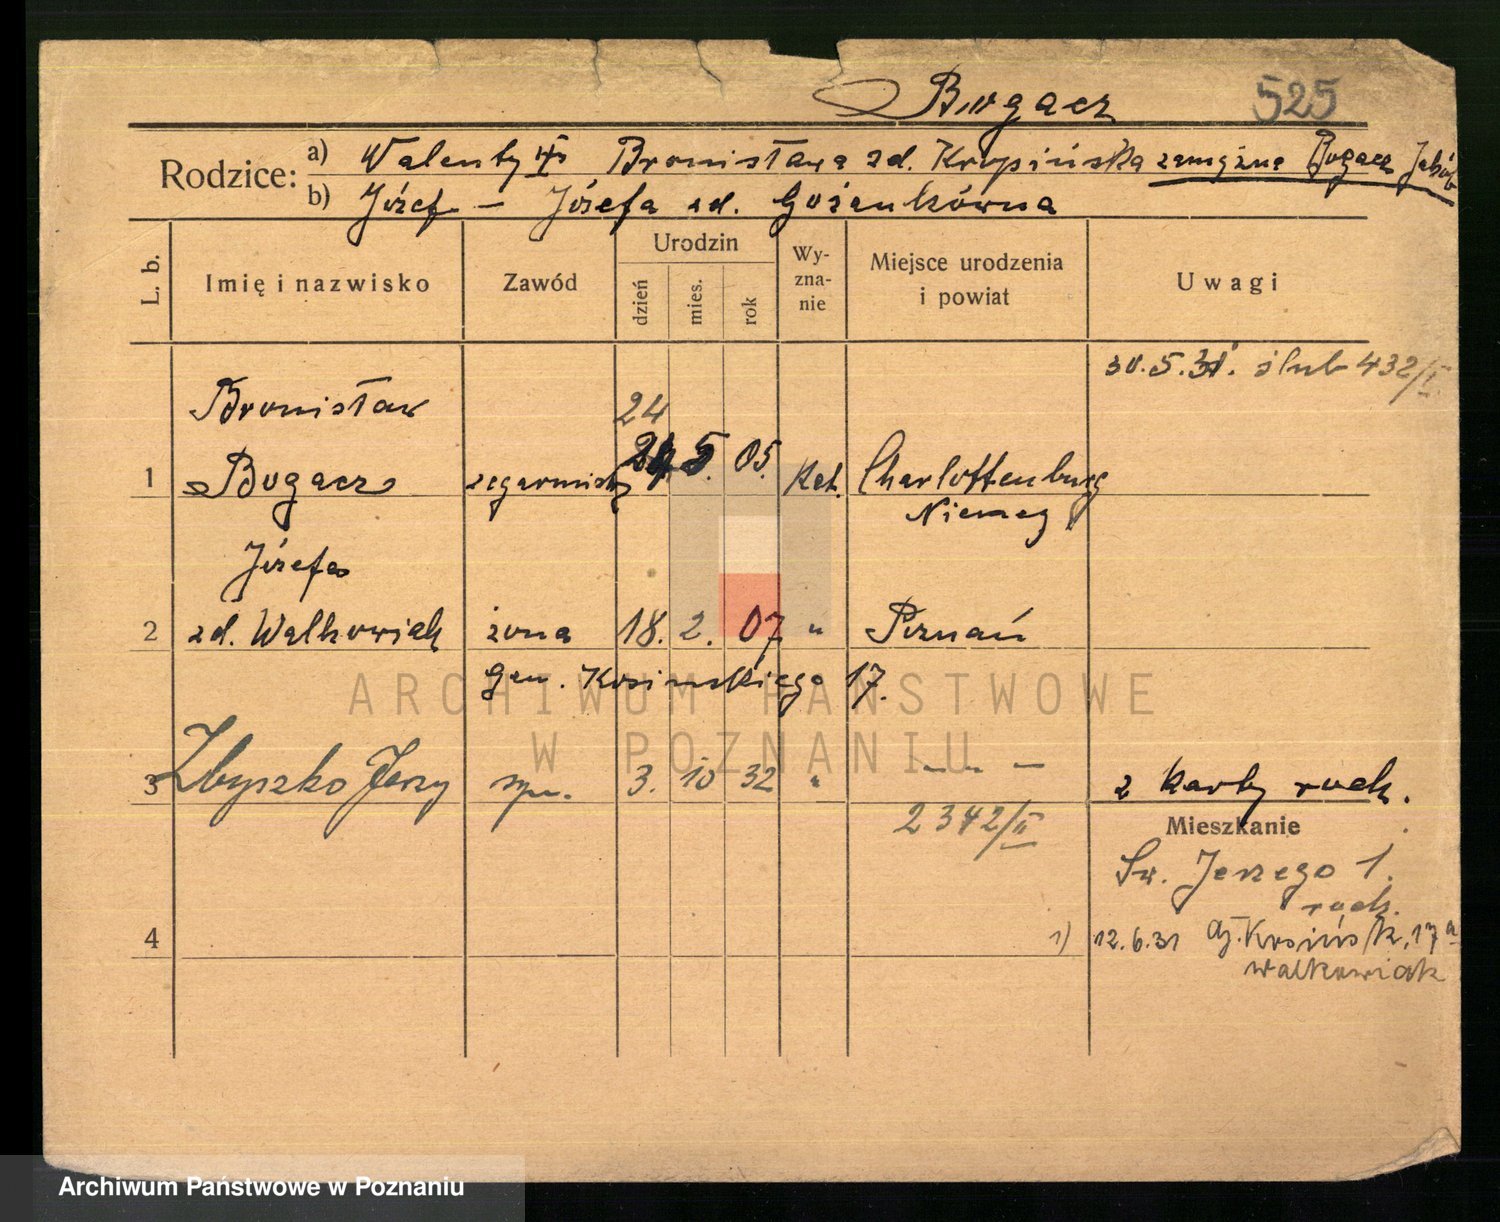 Bugacz 525
Rodzice: a) Walenty Bronisława zd. Kropińska zamężna Bugacz Jakób
b) Józef — Józefa zd. Gożenkówna
L. b. Imię i nazwisko Zawód Urodzin dzień mies. rok Wyznanie Miejsce urodzenia i powiat Uwagi
30.5.31. ślub 432/I.
Bronisław 24
1 Bugacz zegarmistrz 24 5. 05. kat. Charlottenburg
Niemcy
Józefa
2 zd. Walkowiak żona 18. 2. 07 " Poznań
Gen. Kosinskiego 17.
ARCHIWUM PAŃSTWOWE
W POZNANIU
3 Zbyszko Jerzy syn. 3. 10 32 " — " —
2 karty rodz.
2342/II
Mieszkanie
Św. Jerzego 1.
rodz.
4 1) 12.6.31 Kosińsk. 17a
Walkowiak
Archiwum Państwowe w Poznaniu